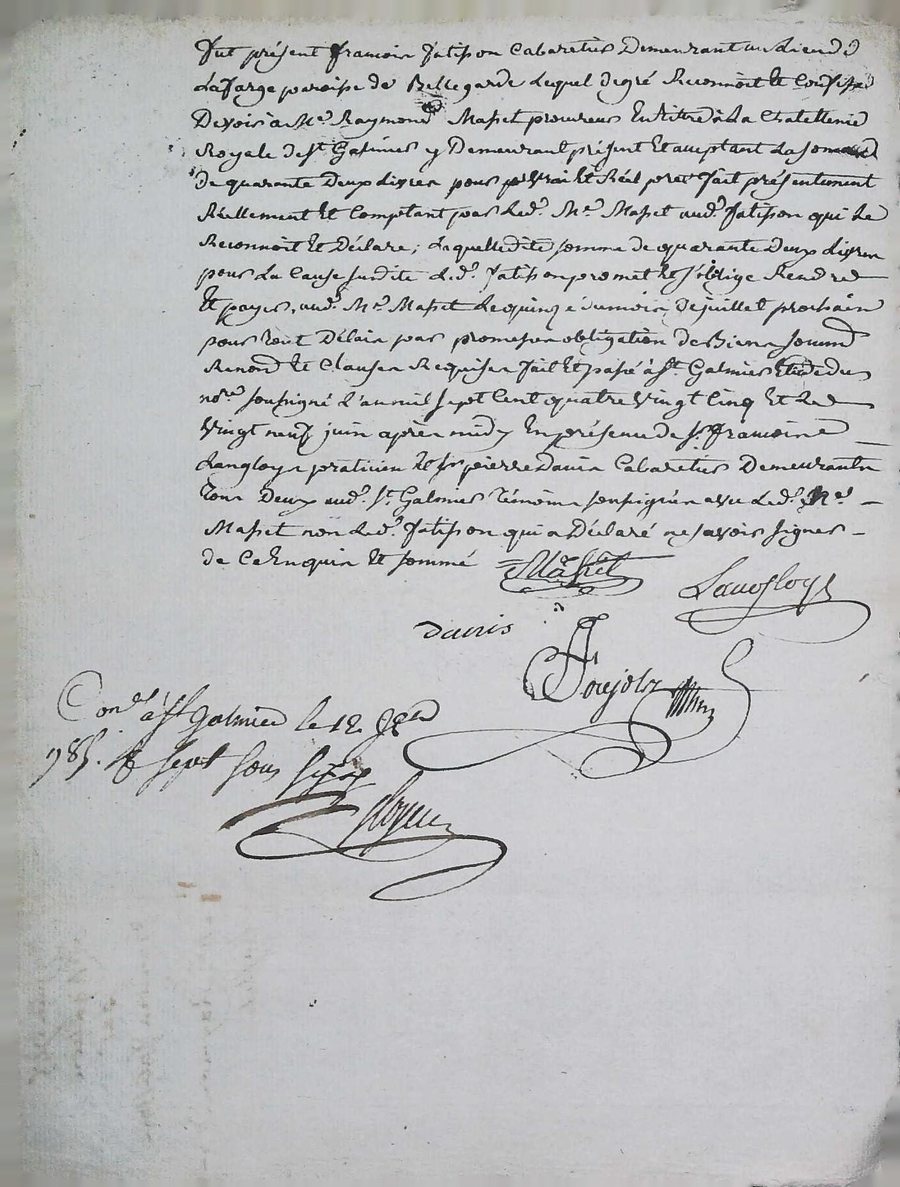 fut présent françois Jatisson Cabaretier Demeurant au Lieu de
La farge paroisse de Bellegarde Lequel de gré Reconnoit et Confesse
Devoir à Me. Raymond Masset procureur En titre à La Chatellenie
Royale de St. Galmier y Demeurant présent Et acceptant La somme
de quarante Deux Livres pour vrai Et Réel pret fait présentement
Réellement Et Comptant par Led. Me. Masset aud. Jatisson qui Le
Reconnoit Et Déclare; Laquelle dite somme de quarante Deux Livres
pour La Cause susdite Led. Jatisson promet Et s'oblige Rendre
Et payer aud. Me. Masset Le quinze du mois de juillet prochain
pour tout Délai par promesse obligation de Biens soumon
Renond Et Clauses Requises fait Et passé à St. Galmier Etude du
nore soussigné L'an mil sept Cent quatre Vingt Cinq Et Le
Vingt neuf juin après midy En présence de sr. françois
Langloys praticien Et sr pierre Dauis Cabaretier Demeurants
tous Deux aud. St. Galmier témoins soussignés avec Led. Me.
Masset non Led. Jatisson qui a Déclaré ne savoir signer
de Ce Enquis Et sommé
Masset
Langloys
dauis
Conlé à St Galmier le 12
785. sept sous